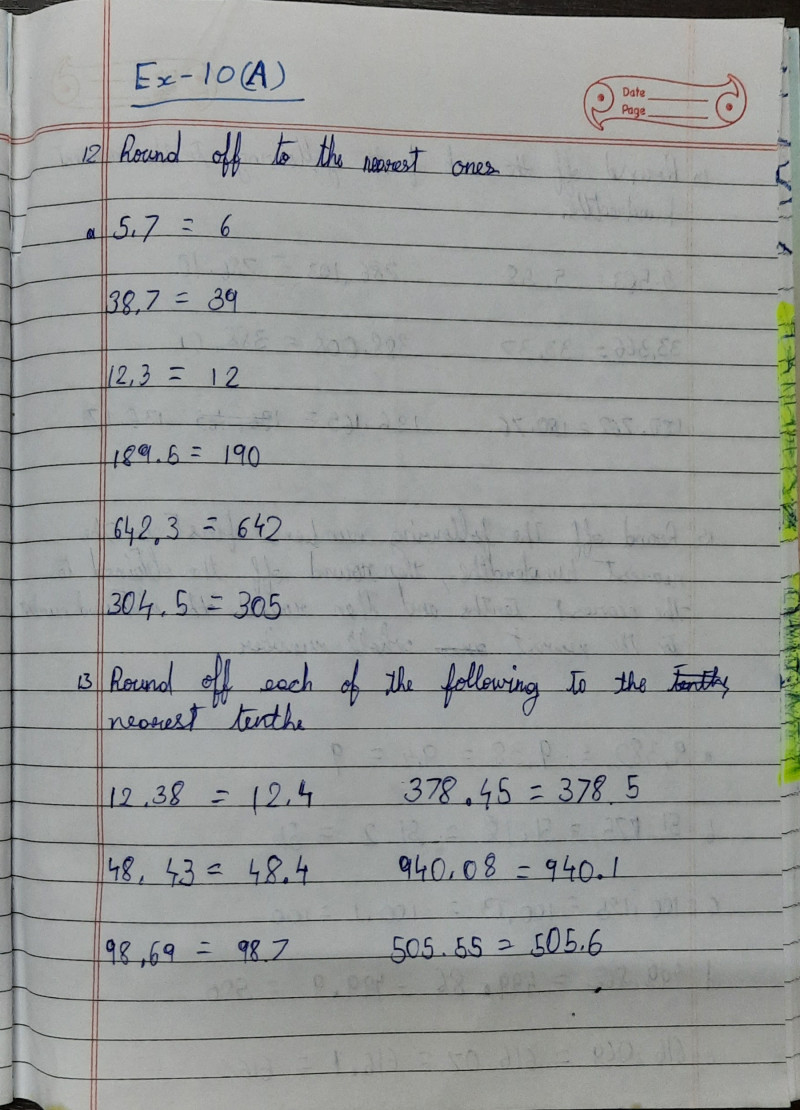 Ex-10(A)
Date
Page
12 Round off to the nearest ones
a 5.7 = 6
38.7 = 39
12.3 = 12
189.6 = 190
642.3 = 642
304.5 = 305
13 Round off each of the following to the tenths
nearest tenths
12.38 = 12.4 378.45 = 378.5
48.43 = 48.4 940.08 = 940.1
98.69 = 98.7 505.55 = 505.6